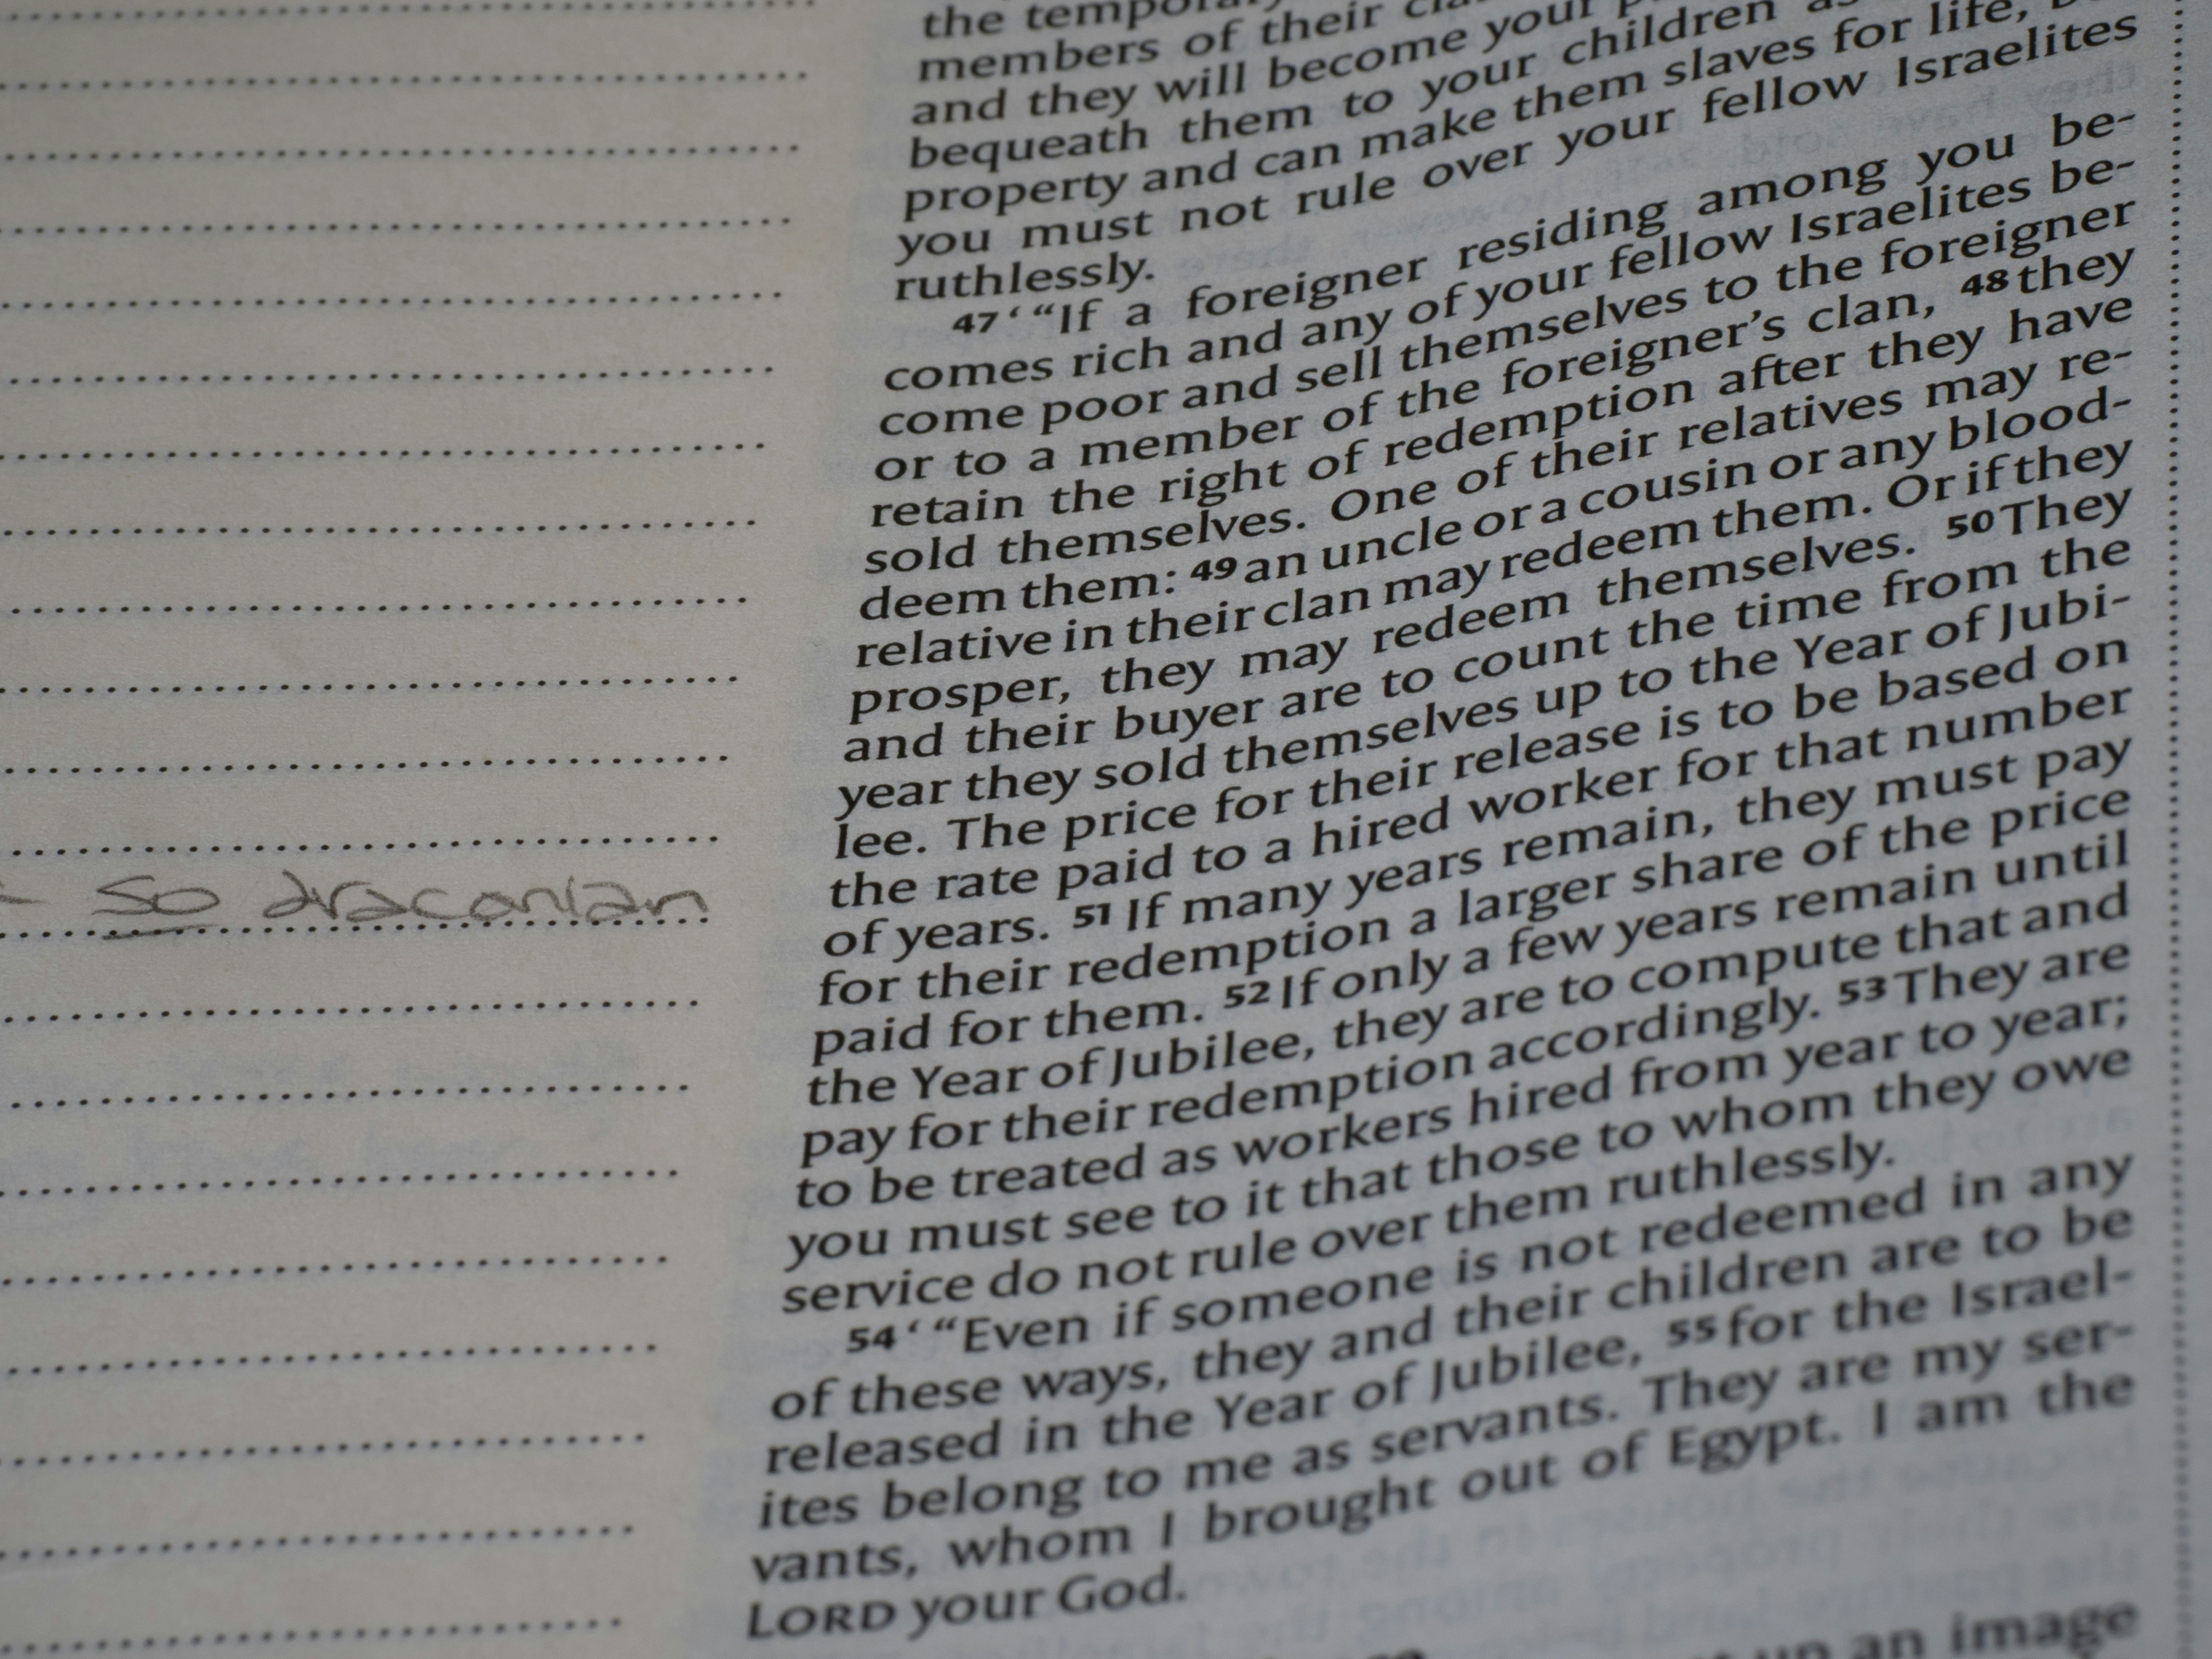 the
members of their
and they will become your
bequeath them to your children
property and can make them slaves for life,
you must not rule over your fellow Israelites
ruthlessly.
47 ‘ “If a foreigner residing among you be-
comes rich and any of your fellow Israelites be-
come poor and sell themselves to the foreigner
or to a member of the foreigner’s clan, 48 they
retain the right of redemption after they have
sold themselves. One of their relatives may re-
deem them: 49 an uncle or a cousin or any blood-
relative in their clan may redeem them. Or if they
prosper, they may redeem themselves. 50 They
and their buyer are to count the time from the
year they sold themselves up to the Year of Jubi-
lee. The price for their release is to be based on
the rate paid to a hired worker for that number
of years. 51 If many years remain, they must pay
for their redemption a larger share of the price
paid for them. 52 If only a few years remain until
the Year of Jubilee, they are to compute that and
pay for their redemption accordingly. 53 They are
to be treated as workers hired from year to year;
you must see to it that those to whom they owe
service do not rule over them ruthlessly.
54 ‘ “Even if someone is not redeemed in any
of these ways, they and their children are to be
released in the Year of Jubilee, 55 for the Israel-
ites belong to me as servants. They are my ser-
vants, whom I brought out of Egypt. I am the
LORD your God.
up an image
so draconian